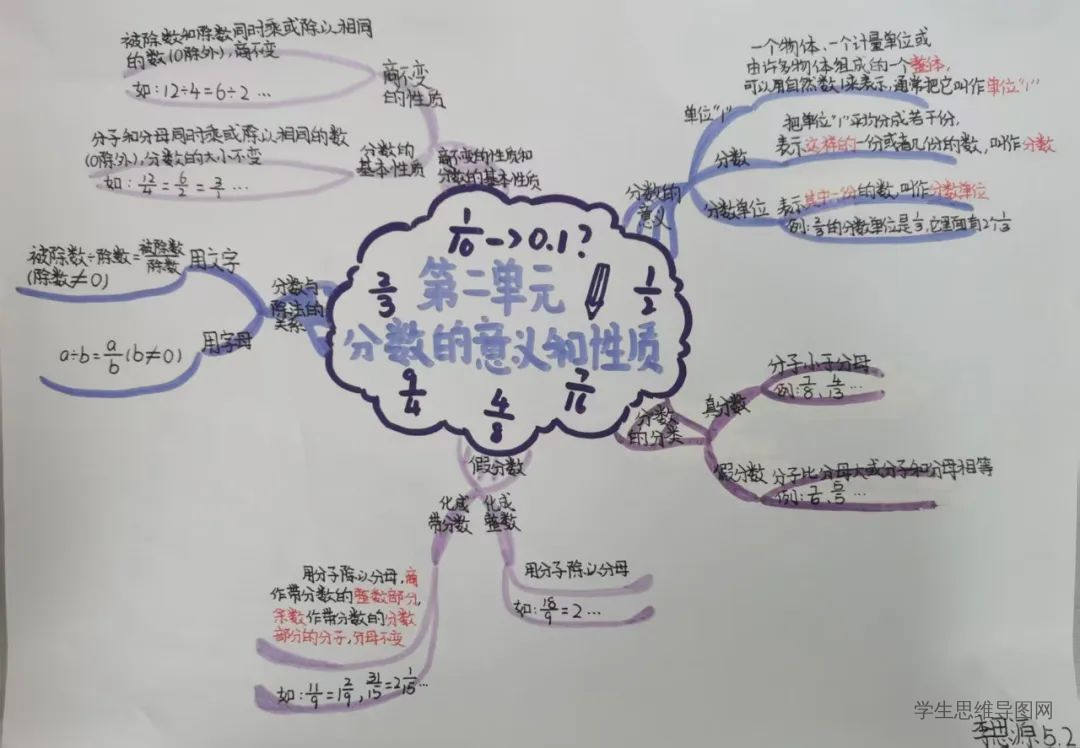 第二单元
分数的意义和性质
1/10->0.1?
2/3
1/2
9/4
4/8
7/16
分数的
意义
单位"1"
一个物体、一个计量单位或
由许多物体组成的一个整体,
可以用自然数1来表示,通常把它叫作单位"1"
分数
把单位"1"平均分成若干份,
表示这样的一份或者几份的数,叫作分数
分数单位
表示其中一份的数,叫作分数单位
例:2/3的分数单位是1/3,它里面有2个1/3
分数
的分类
真分数
分子小于分母
例:7/8、4/13…
假分数
分子比分母大或分子和分母相等
例:7/6、5/5…
假分数
化成
整数
用分子除以分母
如:18/9=2…
化成
带分数
用分子除以分母,商
作带分数的整数部分,
余数作带分数的分数
部分的分子,分母不变
如:11/9=1 2/9,31/15=2 1/15…
分数与
除法的
关系
用文字
被除数÷除数=被除数/除数
(除数≠0)
用字母
a÷b=a/b(b≠0)
商不变的性质和
分数的基本性质
商不变
的性质
被除数和除数同时乘或除以相同
的数(0除外),商不变
如:12÷4=6÷2…
分数的
基本性质
分子和分母同时乘或除以相同的数
(0除外),分数的大小不变
如:12/4=6/2=3/1…
学生思维导图网
李思源5.2